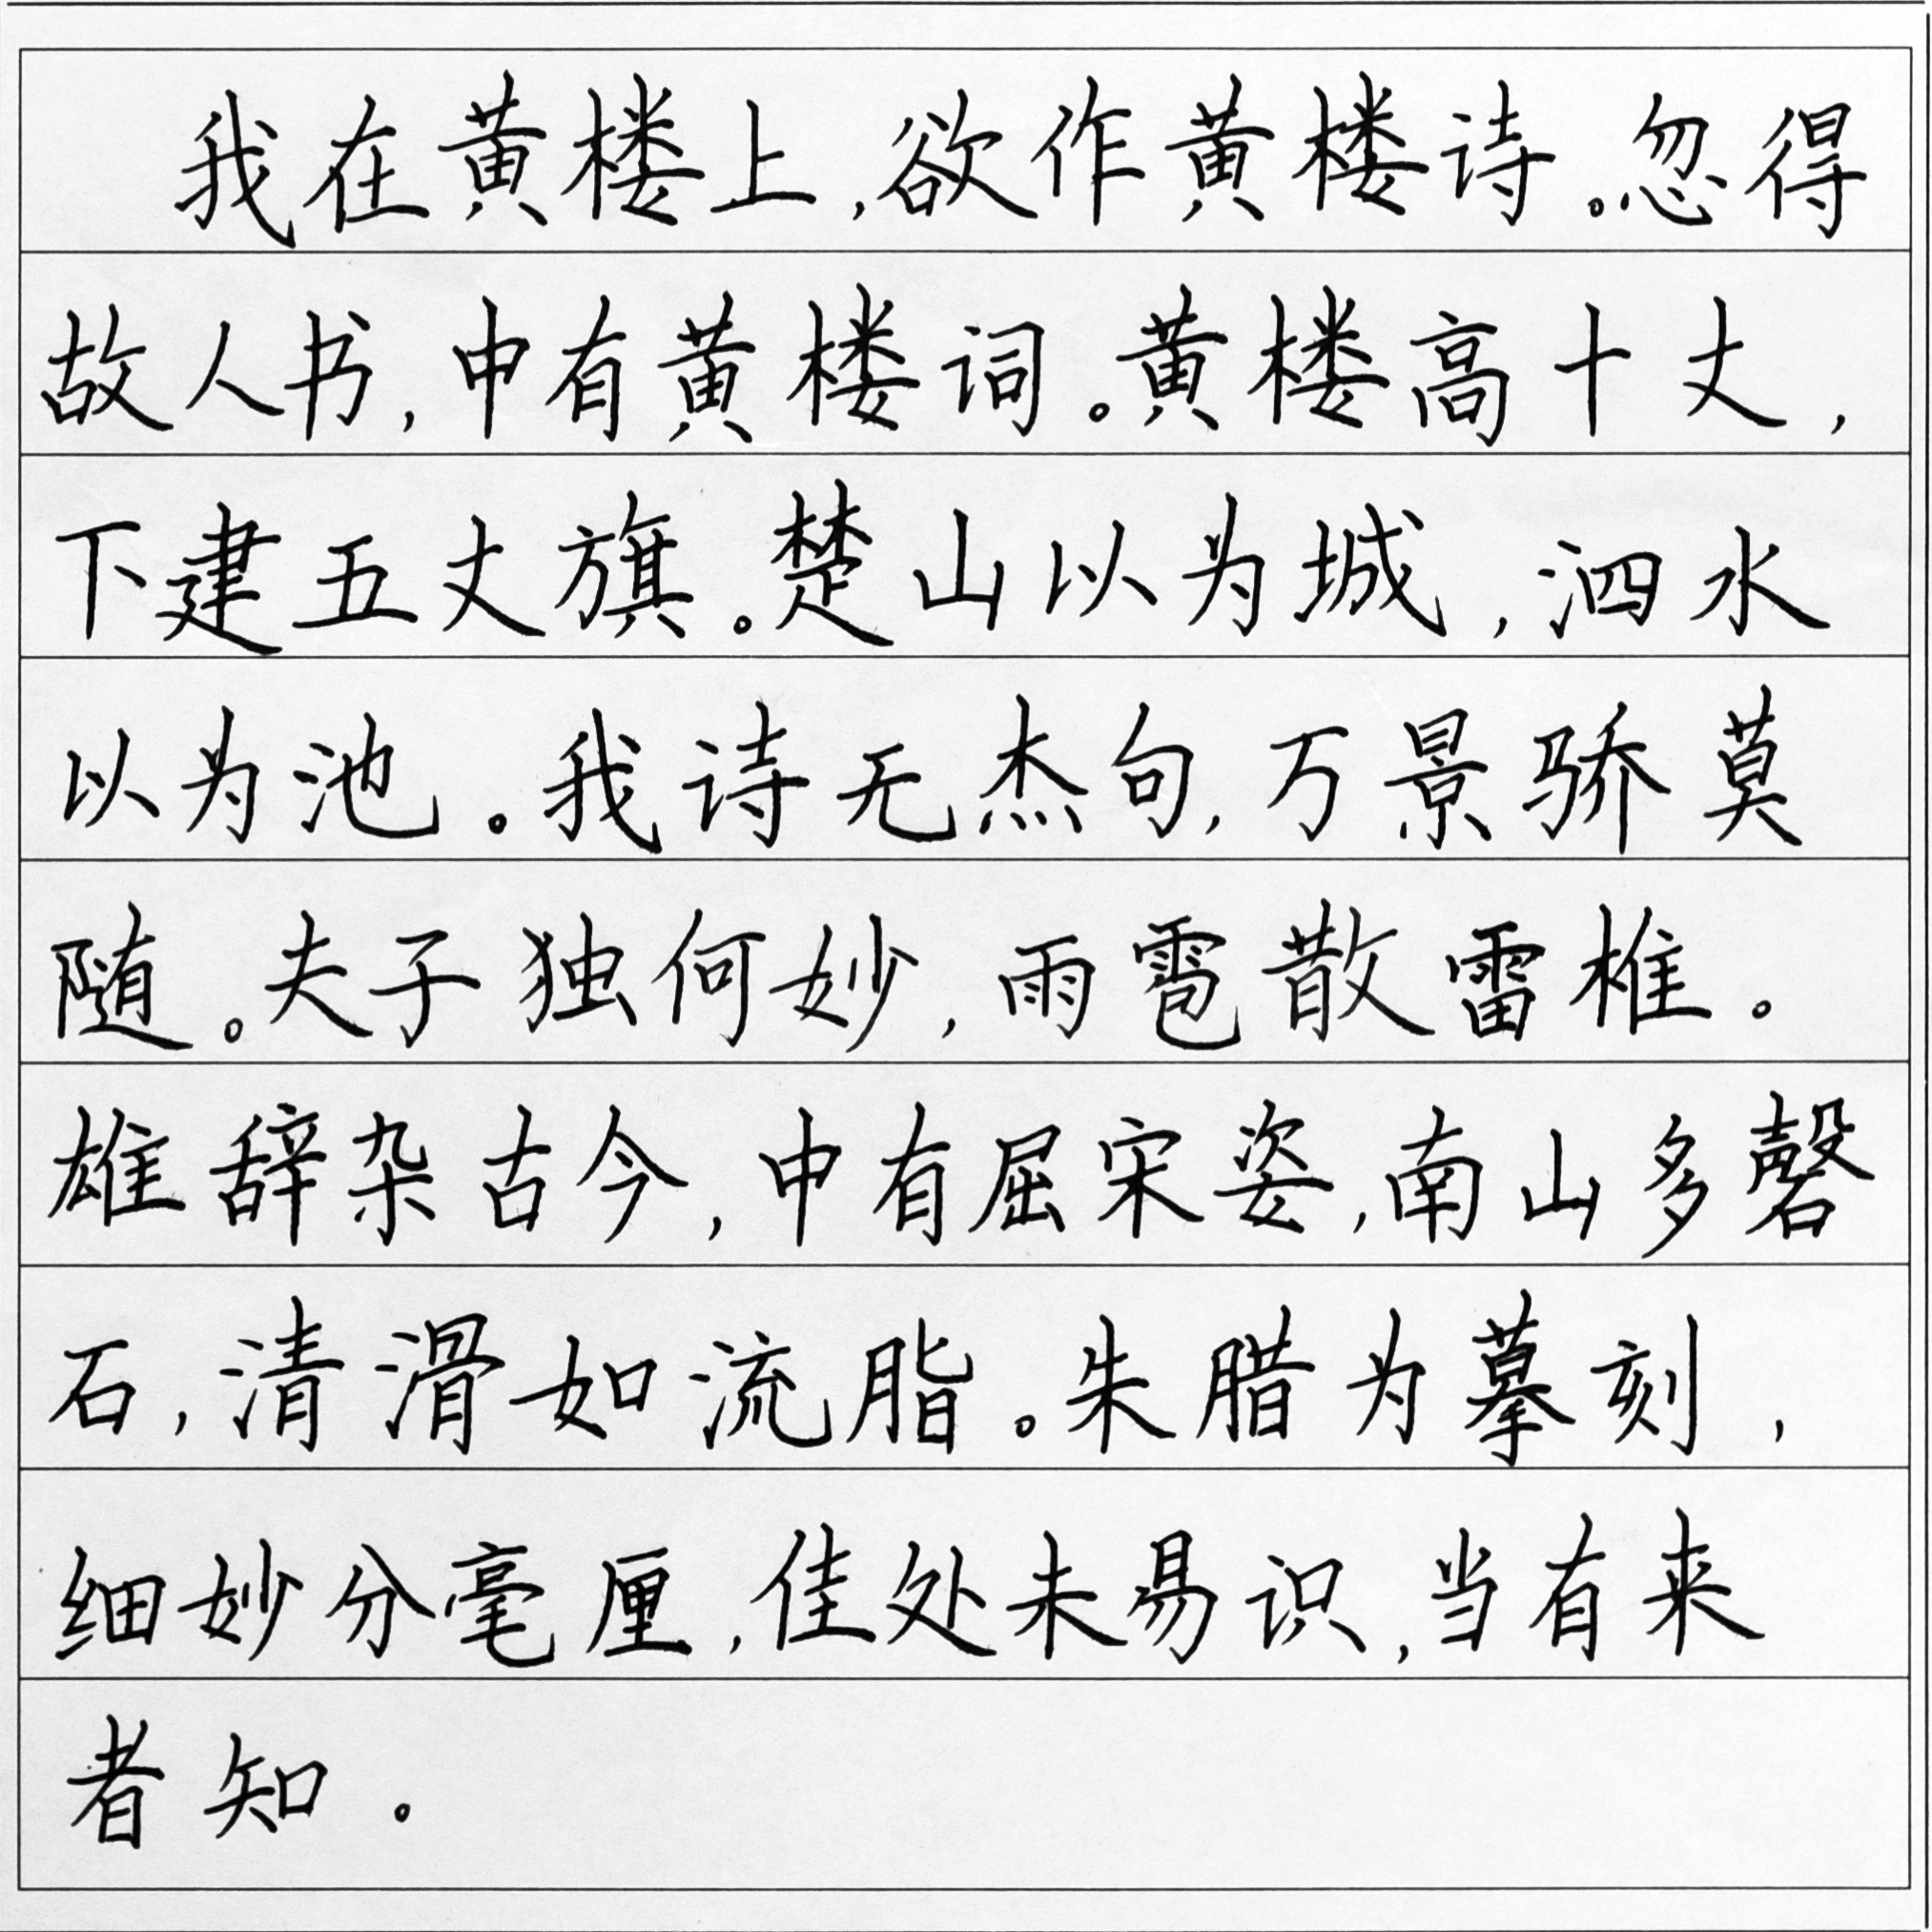 我在黄楼上,欲作黄楼诗。忽得
故人书,中有黄楼词。黄楼高十丈,
下建五丈旗。楚山以为城,泗水
以为池。我诗无杰句,万景骄莫
随。夫子独何妙,雨雹散雷椎。
雄辞杂古今,中有屈宋姿,南山多磬
石,清滑如流脂。朱腊为摹刻,
细妙分毫厘,佳处未易识,当有来
者知。